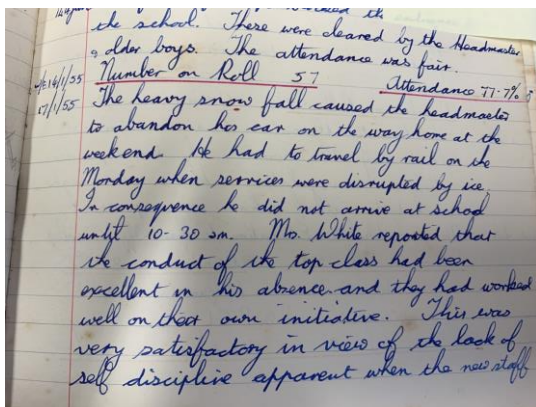 the school. These were cleared by the Headmaster
& older boys. The attendance was fair.
14/1/55 Number on Roll 57 Attendance 77.7%
17/1/55 The heavy snow fall caused the headmaster
to abandon his car on the way home at the
weekend. He had to travel by rail on the
Monday when services were disrupted by ice.
In consequence he did not arrive at school
until 10-30 am. Mrs. White reported that
the conduct of the top class had been
excellent in his absence and they had worked
well on their own initiative. This was
very satisfactory in view of the lack of
self discipline apparent when the new staff